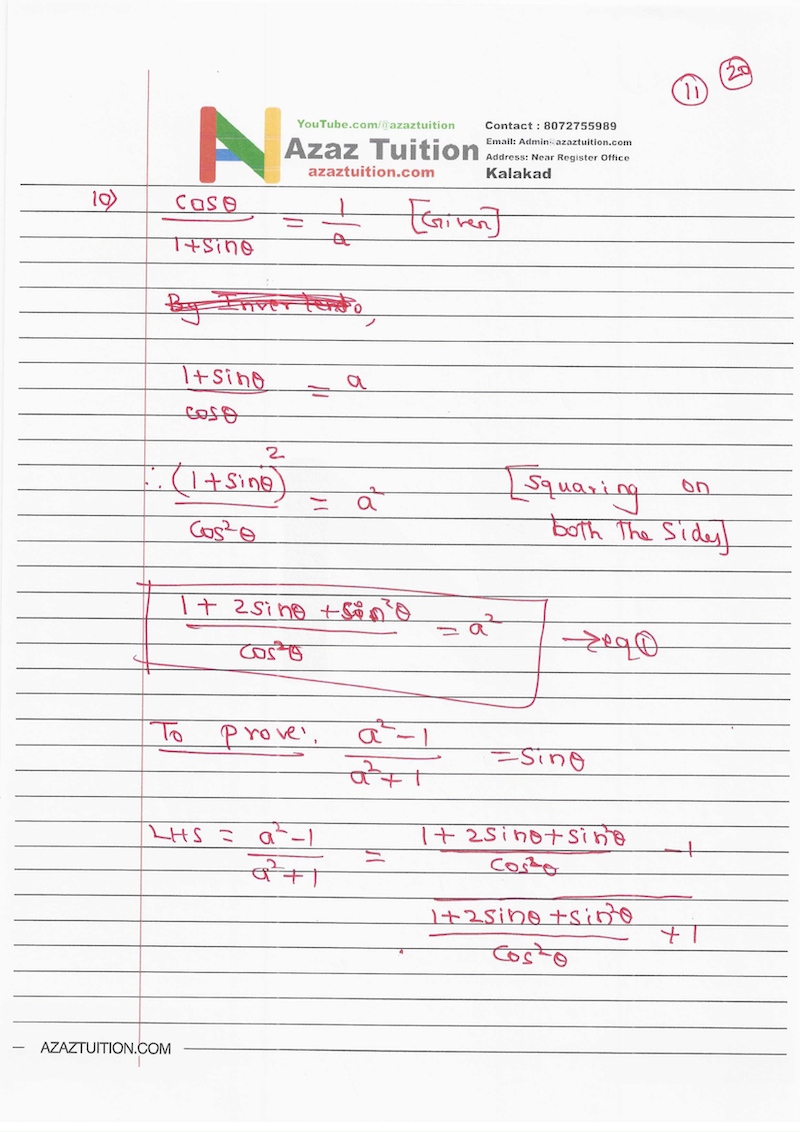 11 20
YouTube.com/@azaztuition
Azaz Tuition
azaztuition.com
Contact : 8072755989
Email: Admin@azaztuition.com
Address: Near Register Office
Kalakad
10) cosθ / 1+sinθ = 1/a [Given]
By Invertendo,
1+sinθ / cosθ = a
∴ (1+sinθ)² / cos²θ = a² [Squaring on
both The Sides]
1 + 2sinθ + sin²θ / cos²θ = a² → eq ①
To prove: a²-1 / a²+1 = sinθ
LHS = a²-1 / a²+1 = 1+2sinθ+sin²θ / cos²θ - 1
1+2sinθ+sin²θ / cos²θ + 1
AZAZTUITION.COM